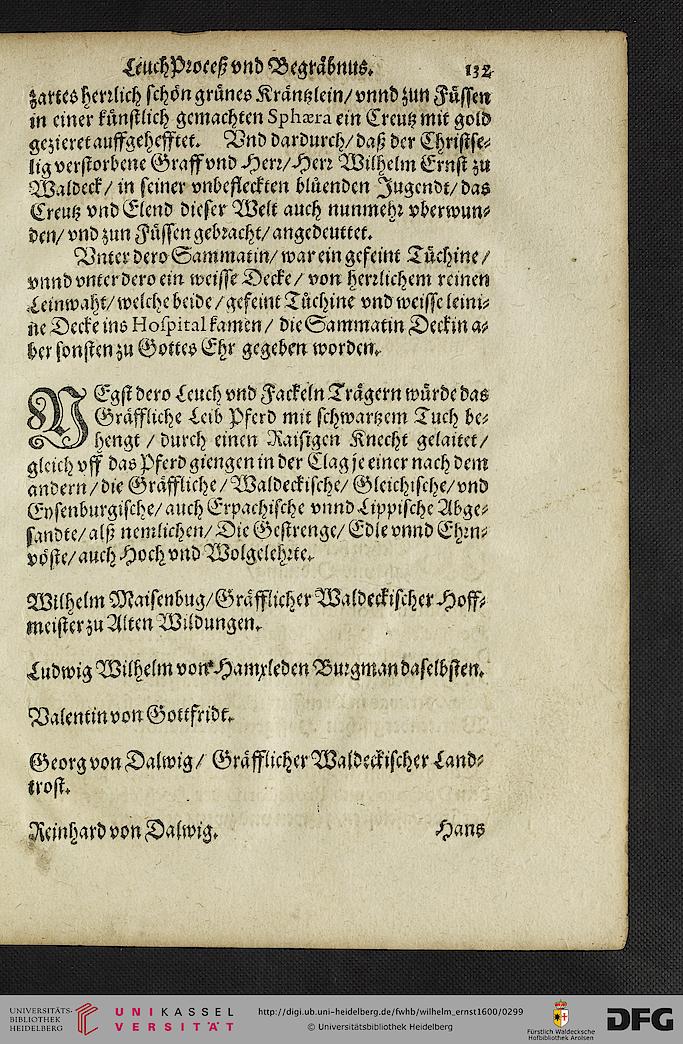 LeuchProceß vnd Begräbnus. 132
zartes herrlich schön grünes Kräntzlein/ vnnd zun Füssen
in einer künstlich gemachten Sphæra ein Creutz mit gold
gezieret auffgehefftet. Vnd dardurch/ daß der Christse-
lig verstorbene Graff vnd Herr/ Herr Wilhelm Ernst zu
Waldeck/ in seiner vnbefleckten blüenden Jugendt/ das
Creutz vnd Elend dieser Welt auch nunmehr vberwun-
den/ vnd zun Füssen gebracht/ angedeuttet.
Vnter dero Sammatin/ war ein gefeint Tüchine/
vnnd vnter dero ein weisse Decke/ von herrlichem reinen
Leinwaht/ welche beide/ gefeint Tüchine vnd weisse leini-
ne Decke ins Hospital kamen/ die Sammatin Deck in a-
ber sonsten zu Gottes Ehr gegeben worden.
NEgst dero Leuch vnd Fackeln Trägern würde das
Gräffliche Leib Pferd mit schwartzem Tuch be-
hengt / durch einen Raisigen Knecht gelaitet/
gleich vff das Pferd giengen in der Clag je einer nach dem
andern/ die Gräffliche/ Waldeckische/ Gleichische/ vnd
Eysenburgische/ auch Erpachische vnnd Lippische Abge-
sandte/ alß nemlichen/ Die Gestrenge/ Edle vnnd Ehrn-
vöste/ auch Hoch vnd Wolgelehrte.
Wilhelm Maisenbug/ Gräfflicher Waldeckischer Hoff-
meister zu Alten Wildungen.
Ludwig Wilhelm von Hamxleden Burgman daselbsten.
Valentin von Gottfridt.
Georg von Dalwig/ Gräfflicher Waldeckischer Land-
trost.
Reinhard von Dalwig. Hans
UNIVERSITÄTS-
BIBLIOTHEK
HEIDELBERG
UNIKASSEL
VERSITÄT
http://digi.ub.uni-heidelberg.de/fwhb/wilhelm_ernst1600/0299
© Universitätsbibliothek Heidelberg
Fürstlich Waldecksche
Hofbibliothek Arolsen
DFG